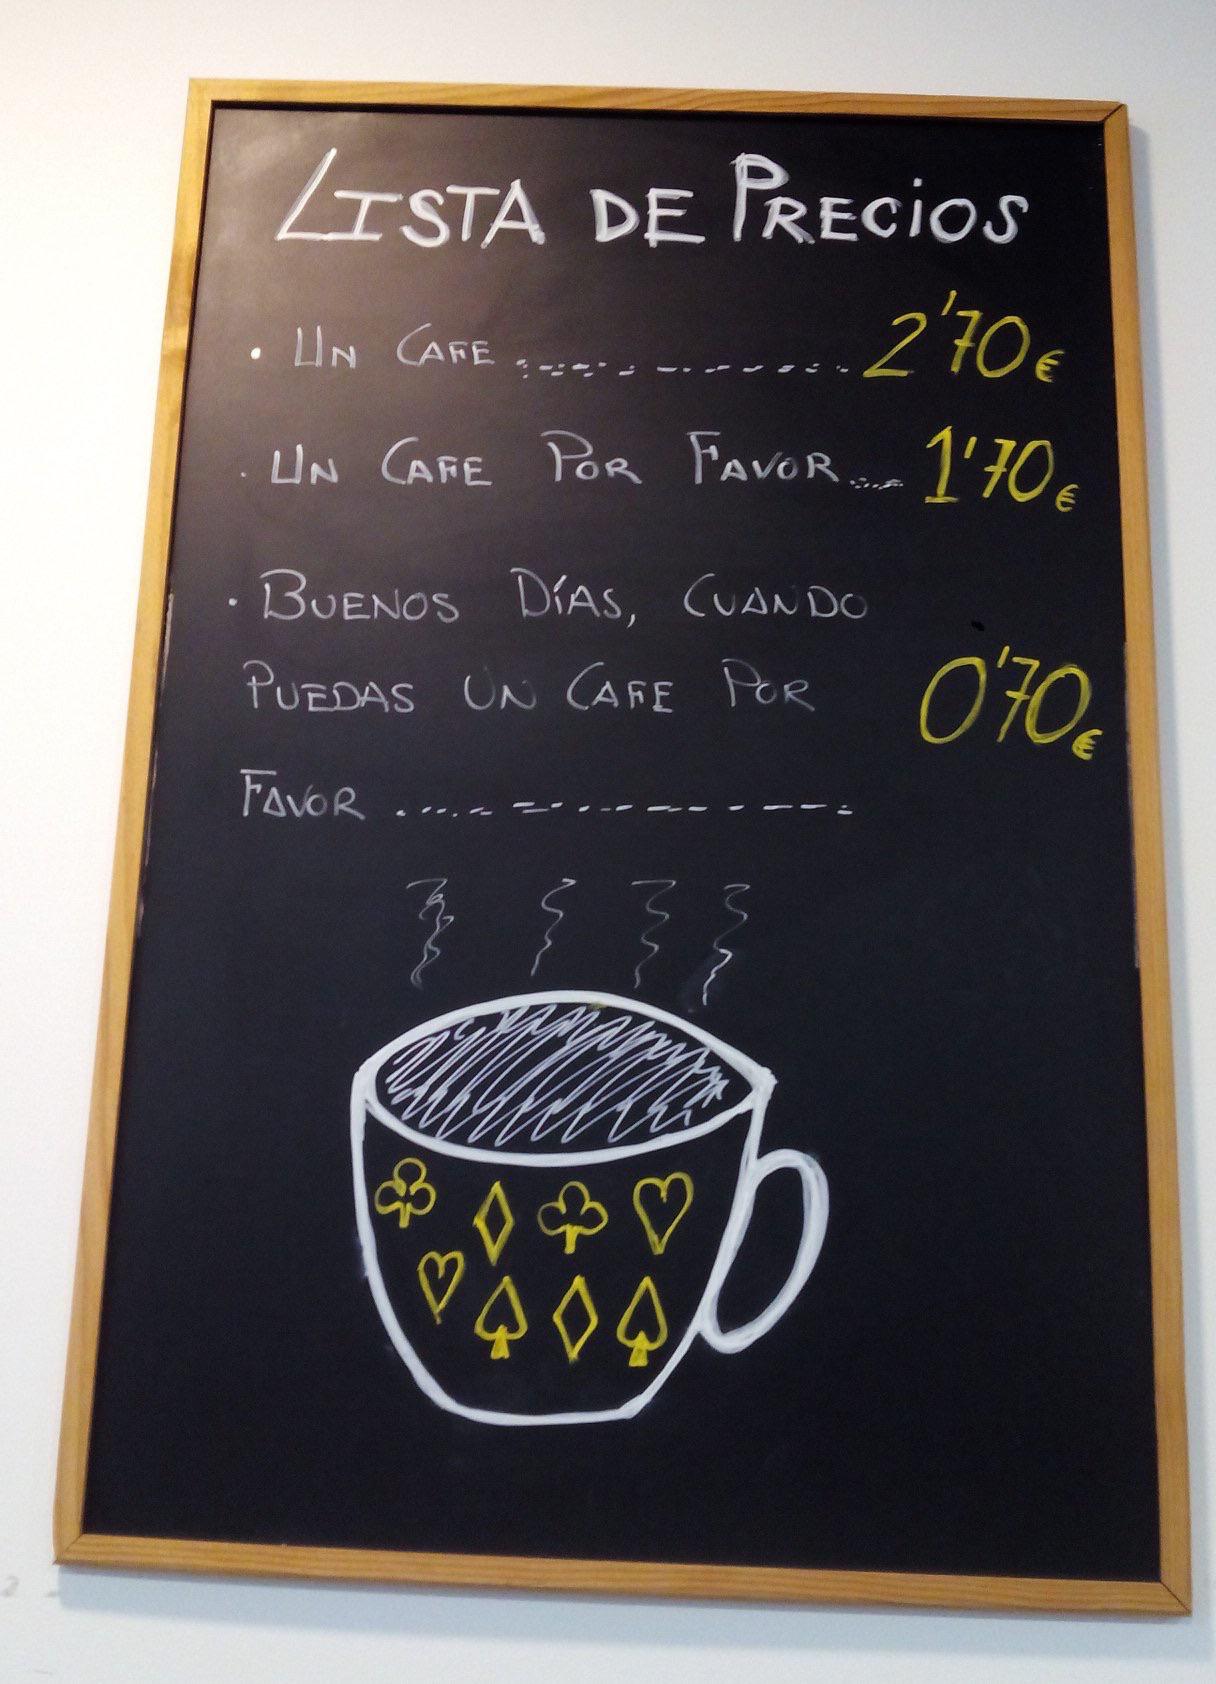 LISTA DE PRECIOS
· UN CAFE ............ 2'70€
· UN CAFE POR FAVOR.... 1'70€
· BUENOS DÍAS, CUANDO
PUEDAS UN CAFE POR 0'70€
FAVOR ................